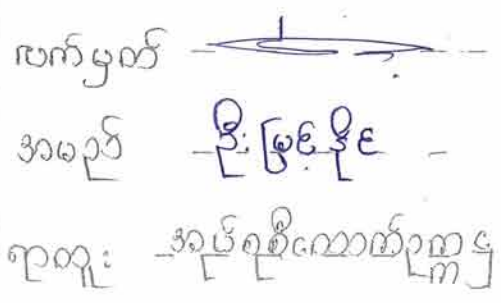 လက်မှတ်
အမည် ဦးမြင့်ဒိုင်
ရာထူး အုပ်ချုပ်ကောက်ဥက္ကဌ